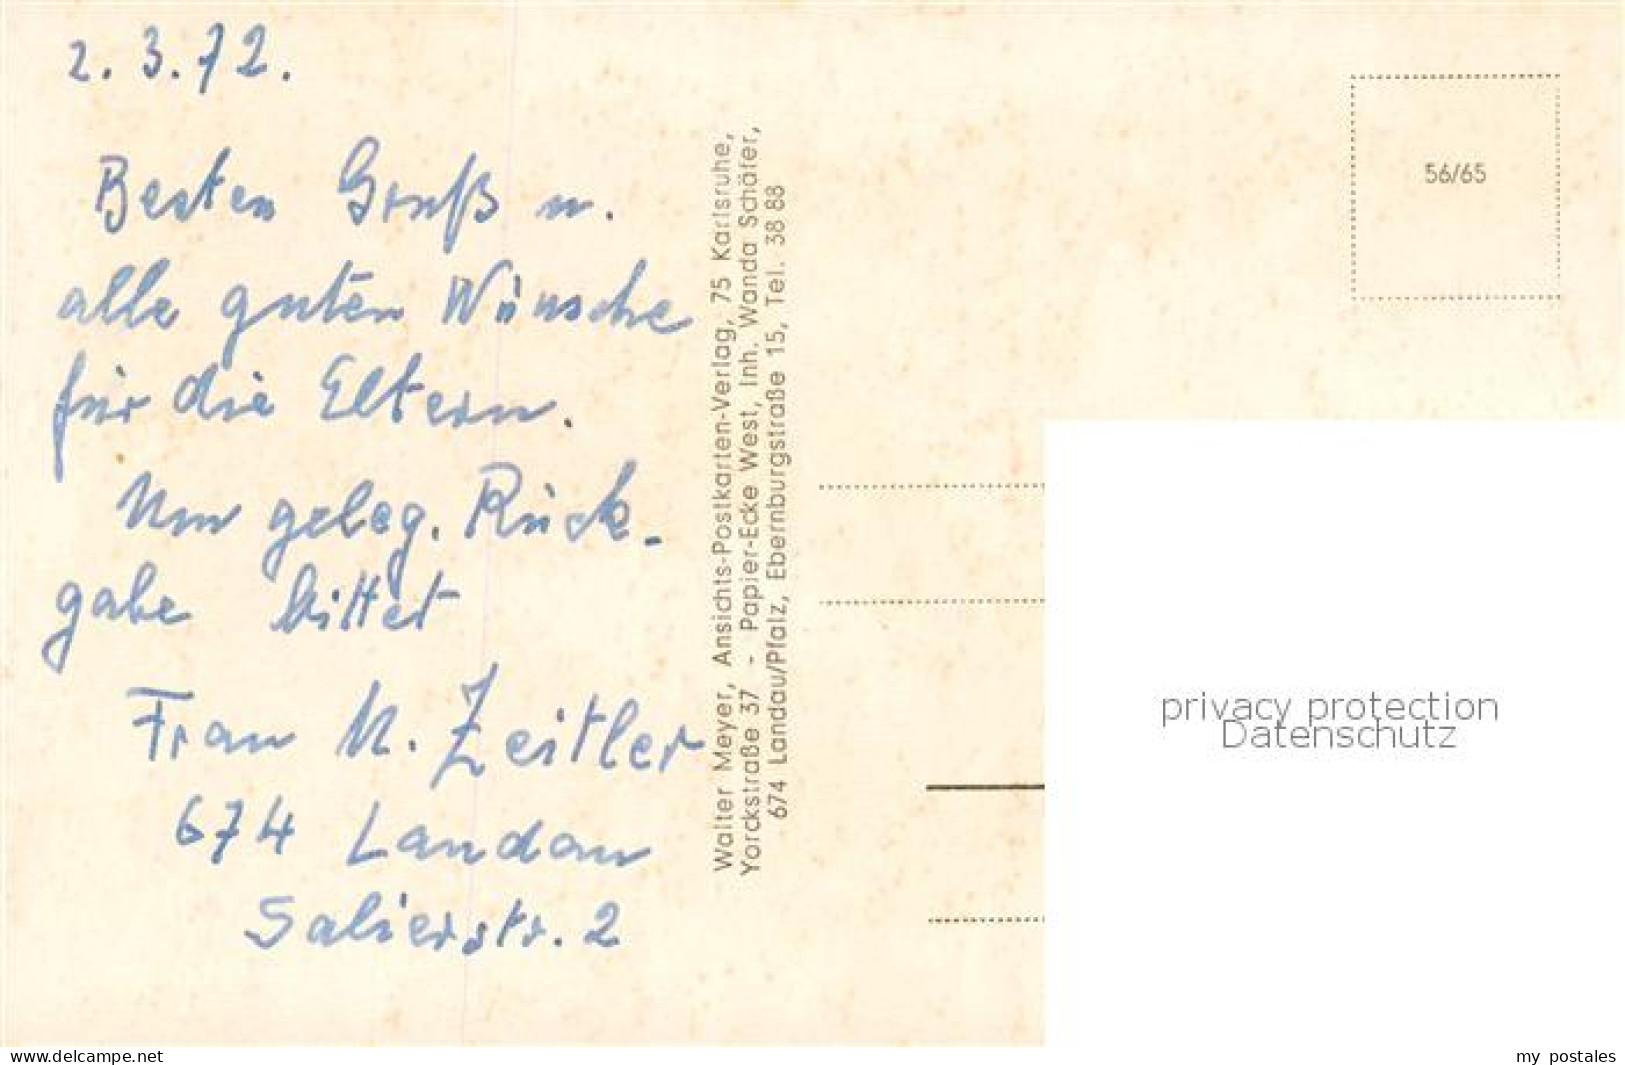 2.3.72.
Besten Gruß u.
alle guten Wünsche
für die Eltern.
Um geleg. Rück-
gabe bittet
Frau M. Zeitler
674 Landau
Salierstr. 2
Walter Meyer, Ansichts-Postkarten-Verlag, 75 Karlsruhe,
Yorckstraße 37 - Papier-Ecke West, Inh. Wanda Schäfer,
674 Landau/Pfalz, Ebernburgstraße 15, Tel. 38 88
56/65
privacy protection
Datenschutz
www.delcampe.net
my_postales